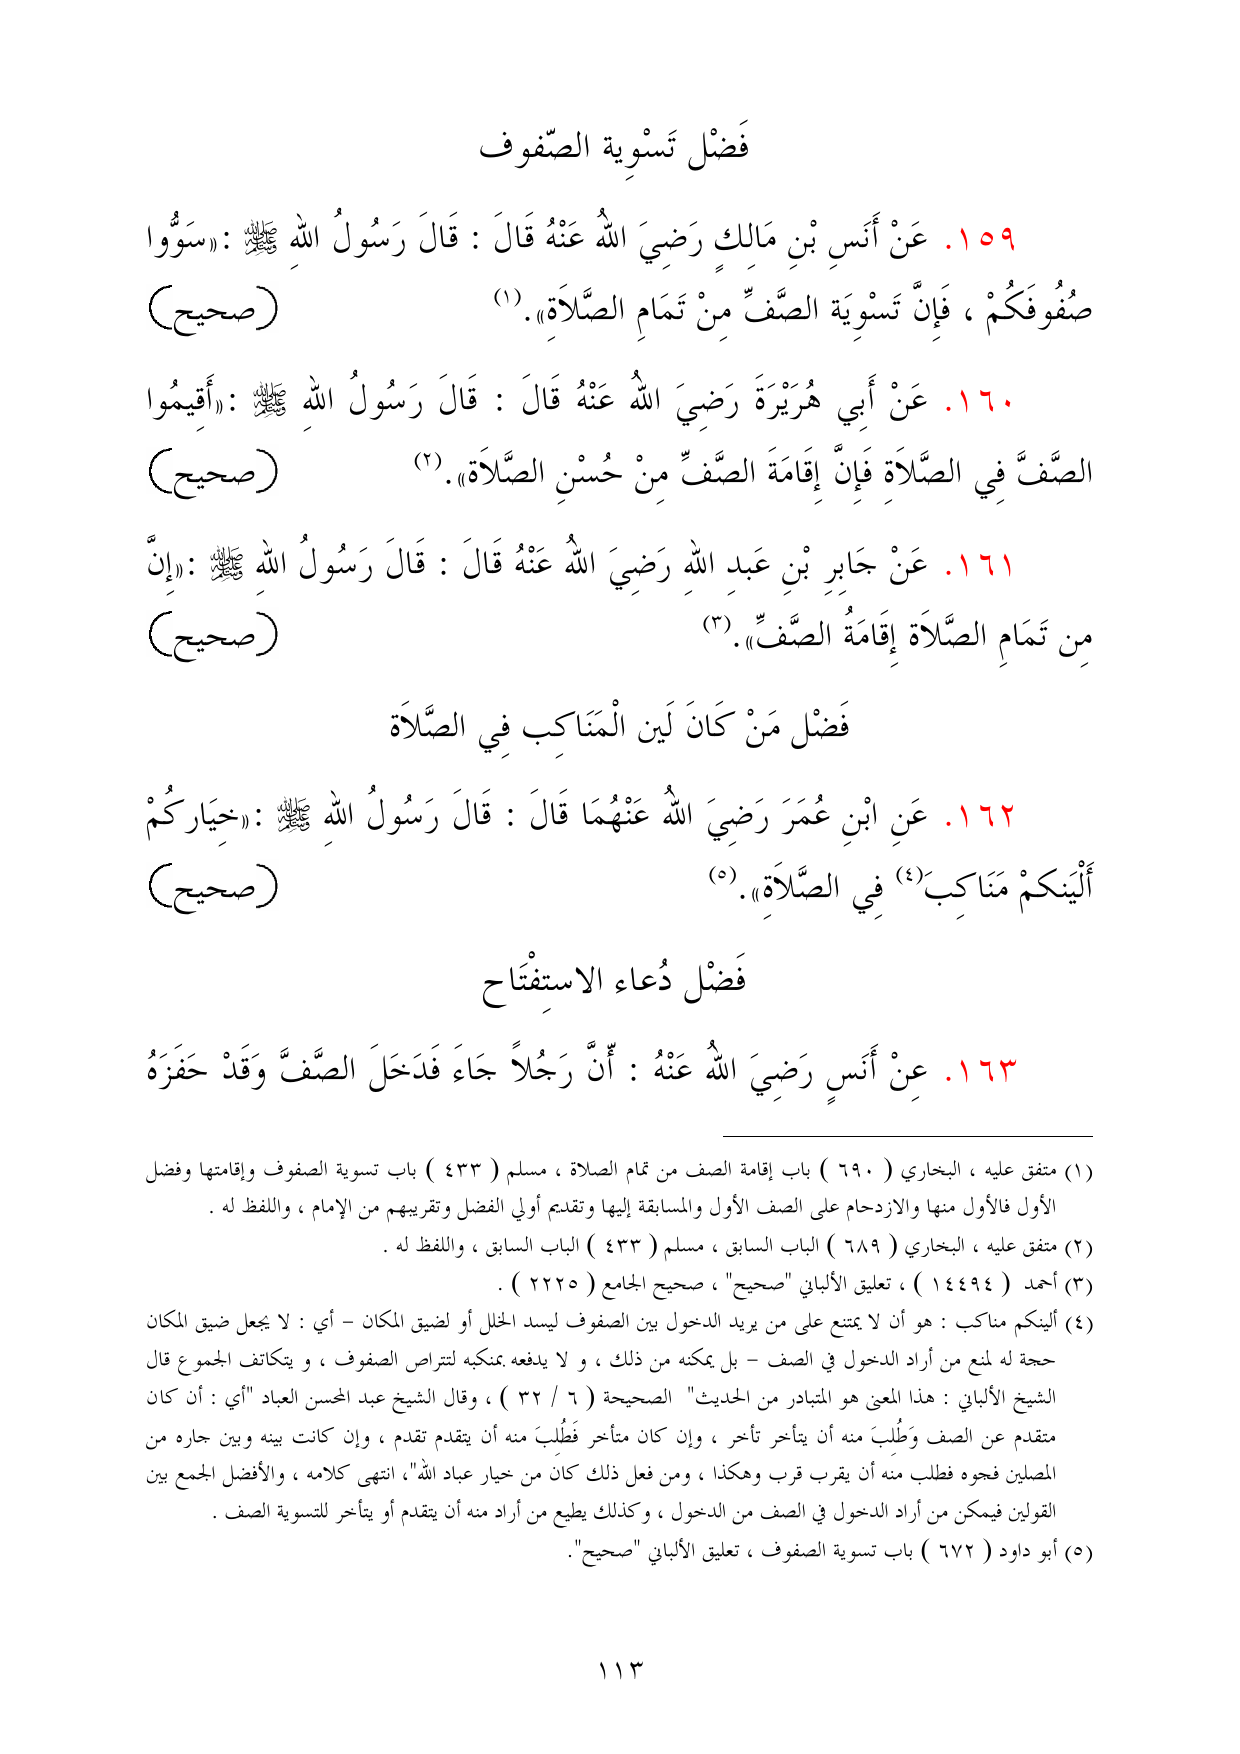 فَضْل تَسْوِية الصّفوف
١٥٩. عَنْ أَنَسِ بْنِ مَالِكٍ رَضِيَ اللهُ عَنْهُ قَالَ : قَالَ رَسُولُ اللهِ ﷺ :«سَوُّوا
صُفُوفَكُمْ ، فَإِنَّ تَسْوِيَة الصَّفِّ مِنْ تَمَامِ الصَّلاَةِ».(١) (صحيح)
١٦٠. عَنْ أَبِي هُرَيْرَةَ رَضِيَ اللهُ عَنْهُ قَالَ : قَالَ رَسُولُ اللهِ ﷺ :«أَقِيمُوا
الصَّفَّ فِي الصَّلاَةِ فَإِنَّ إِقَامَةَ الصَّفِّ مِنْ حُسْنِ الصَّلاَة».(٢) (صحيح)
١٦١. عَنْ جَابِرِ بْنِ عَبدِ اللهِ رَضِيَ اللهُ عَنْهُ قَالَ : قَالَ رَسُولُ اللهِ ﷺ :«إِنَّ
مِن تَمَامِ الصَّلاَة إِقَامَةُ الصَّفِّ».(٣) (صحيح)
فَضْل مَنْ كَانَ لَين الْمَنَاكِب فِي الصَّلاَة
١٦٢. عَنِ ابْنِ عُمَرَ رَضِيَ اللهُ عَنْهُمَا قَالَ : قَالَ رَسُولُ اللهِ ﷺ :«خِيَاركُمْ
أَلْيَنكمْ مَنَاكِبَ(٤) فِي الصَّلاَةِ».(٥) (صحيح)
فَضْل دُعاء الاستِفْتَاح
١٦٣. عِنْ أَنَسٍ رَضِيَ اللهُ عَنْهُ : أَنَّ رَجُلاً جَاءَ فَدَخَلَ الصَّفَّ وَقَدْ حَفَزَهُ
(١) متفق عليه ، البخاري ( ٦٩٠ ) باب إقامة الصف من تمام الصلاة ، مسلم ( ٤٣٣ ) باب تسوية الصفوف وإقامتها وفضل
الأول فالأول منها والازدحام على الصف الأول والمسابقة إليها وتقديم أولي الفضل وتقريبهم من الإمام ، واللفظ له .
(٢) متفق عليه ، البخاري ( ٦٨٩ ) الباب السابق ، مسلم ( ٤٣٣ ) الباب السابق ، واللفظ له .
(٣) أحمد ( ١٤٤٩٤ ) ، تعليق الألباني "صحيح" ، صحيح الجامع ( ٢٢٢٥ ) .
(٤) ألينكم مناكب : هو أن لا يمتنع على من يريد الدخول بين الصفوف ليسد الخلل أو لضيق المكان – أي : لا يجعل ضيق المكان
حجة له لمنع من أراد الدخول في الصف – بل يمكنه من ذلك ، و لا يدفعه بمنكبه لتتراص الصفوف ، و يتكاتف الجموع قال
الشيخ الألباني : هذا المعنى هو المتبادر من الحديث" الصحيحة ( ٦ / ٣٢ ) ، وقال الشيخ عبد المحسن العباد "أي : أن كان
متقدم عن الصف وَطُلِبَ منه أن يتأخر تأخر ، وإن كان متأخر فَطُلِبَ منه أن يتقدم تقدم ، وإن كانت بينه وبين جاره من
المصلين فجوه فطلب منه أن يقرب قرب وهكذا ، ومن فعل ذلك كان من خيار عباد الله"، انتهى كلامه ، والأفضل الجمع بين
القولين فيمكن من أراد الدخول في الصف من الدخول ، وكذلك يطيع من أراد منه أن يتقدم أو يتأخر للتسوية الصف .
(٥) أبو داود ( ٦٧٢ ) باب تسوية الصفوف ، تعليق الألباني "صحيح".
١١٣